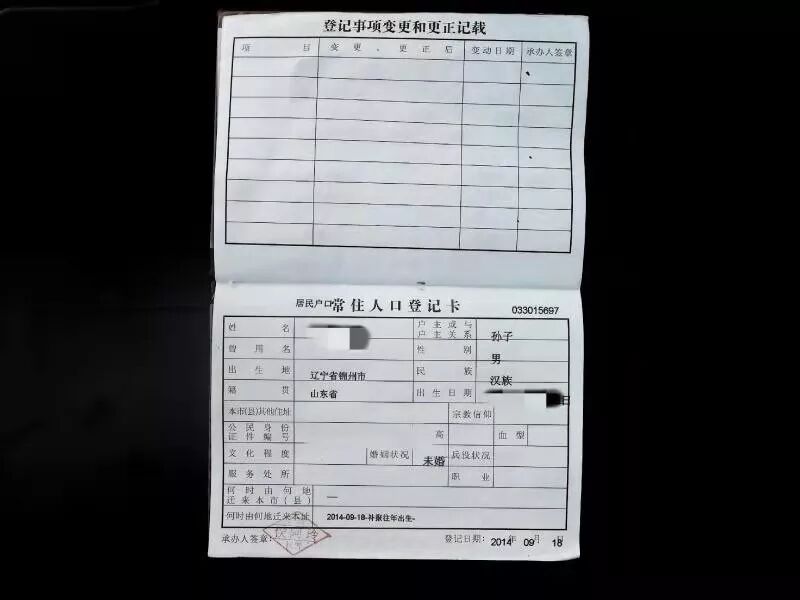 登记事项变更和更正记载
项 目 变 更 、 更 正 后 变动日期 承办人签章
居民户口 常住人口登记卡 033015697
姓 名 户主或与户主关系 孙子
曾用名 性 别 男
出生地 辽宁省锦州市 民 族 汉族
籍 贯 山东省 出生日期 日
本市(县)其他住址 宗教信仰
公民身份证件编号 高 血型
文化程度 婚姻状况 未婚 兵役状况
服务处所 职 业
何时由何地迁来本市(县) —
何时由何地迁来本址 2014-09-18-补报往年出生-
承办人签章: 登记日期: 2014 年 09 月 18 日